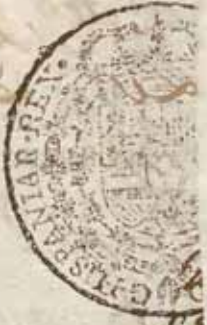 G·HISPANIAR·REX·